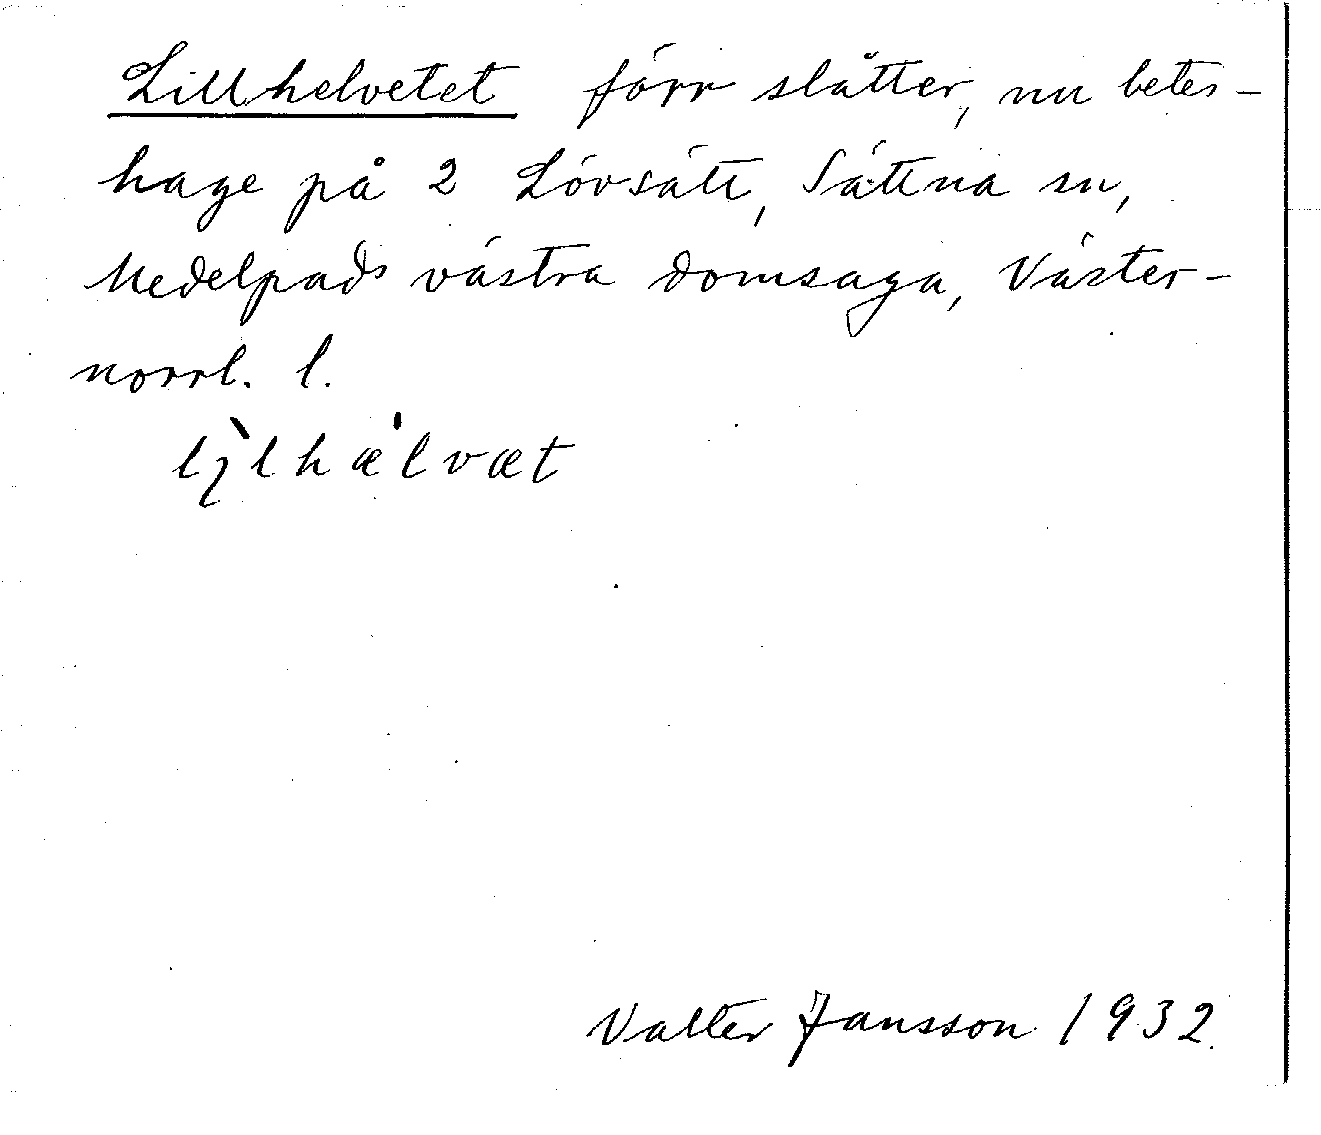 Lillhelvetet förr slåtter, nu betes-
hage på 2 Lövsätt, Sättna sn,
Medelpads västra domsaga, Väster-
norrl. l.
lı̨̀lhæ̍lvæt
Valter Jansson 1932.